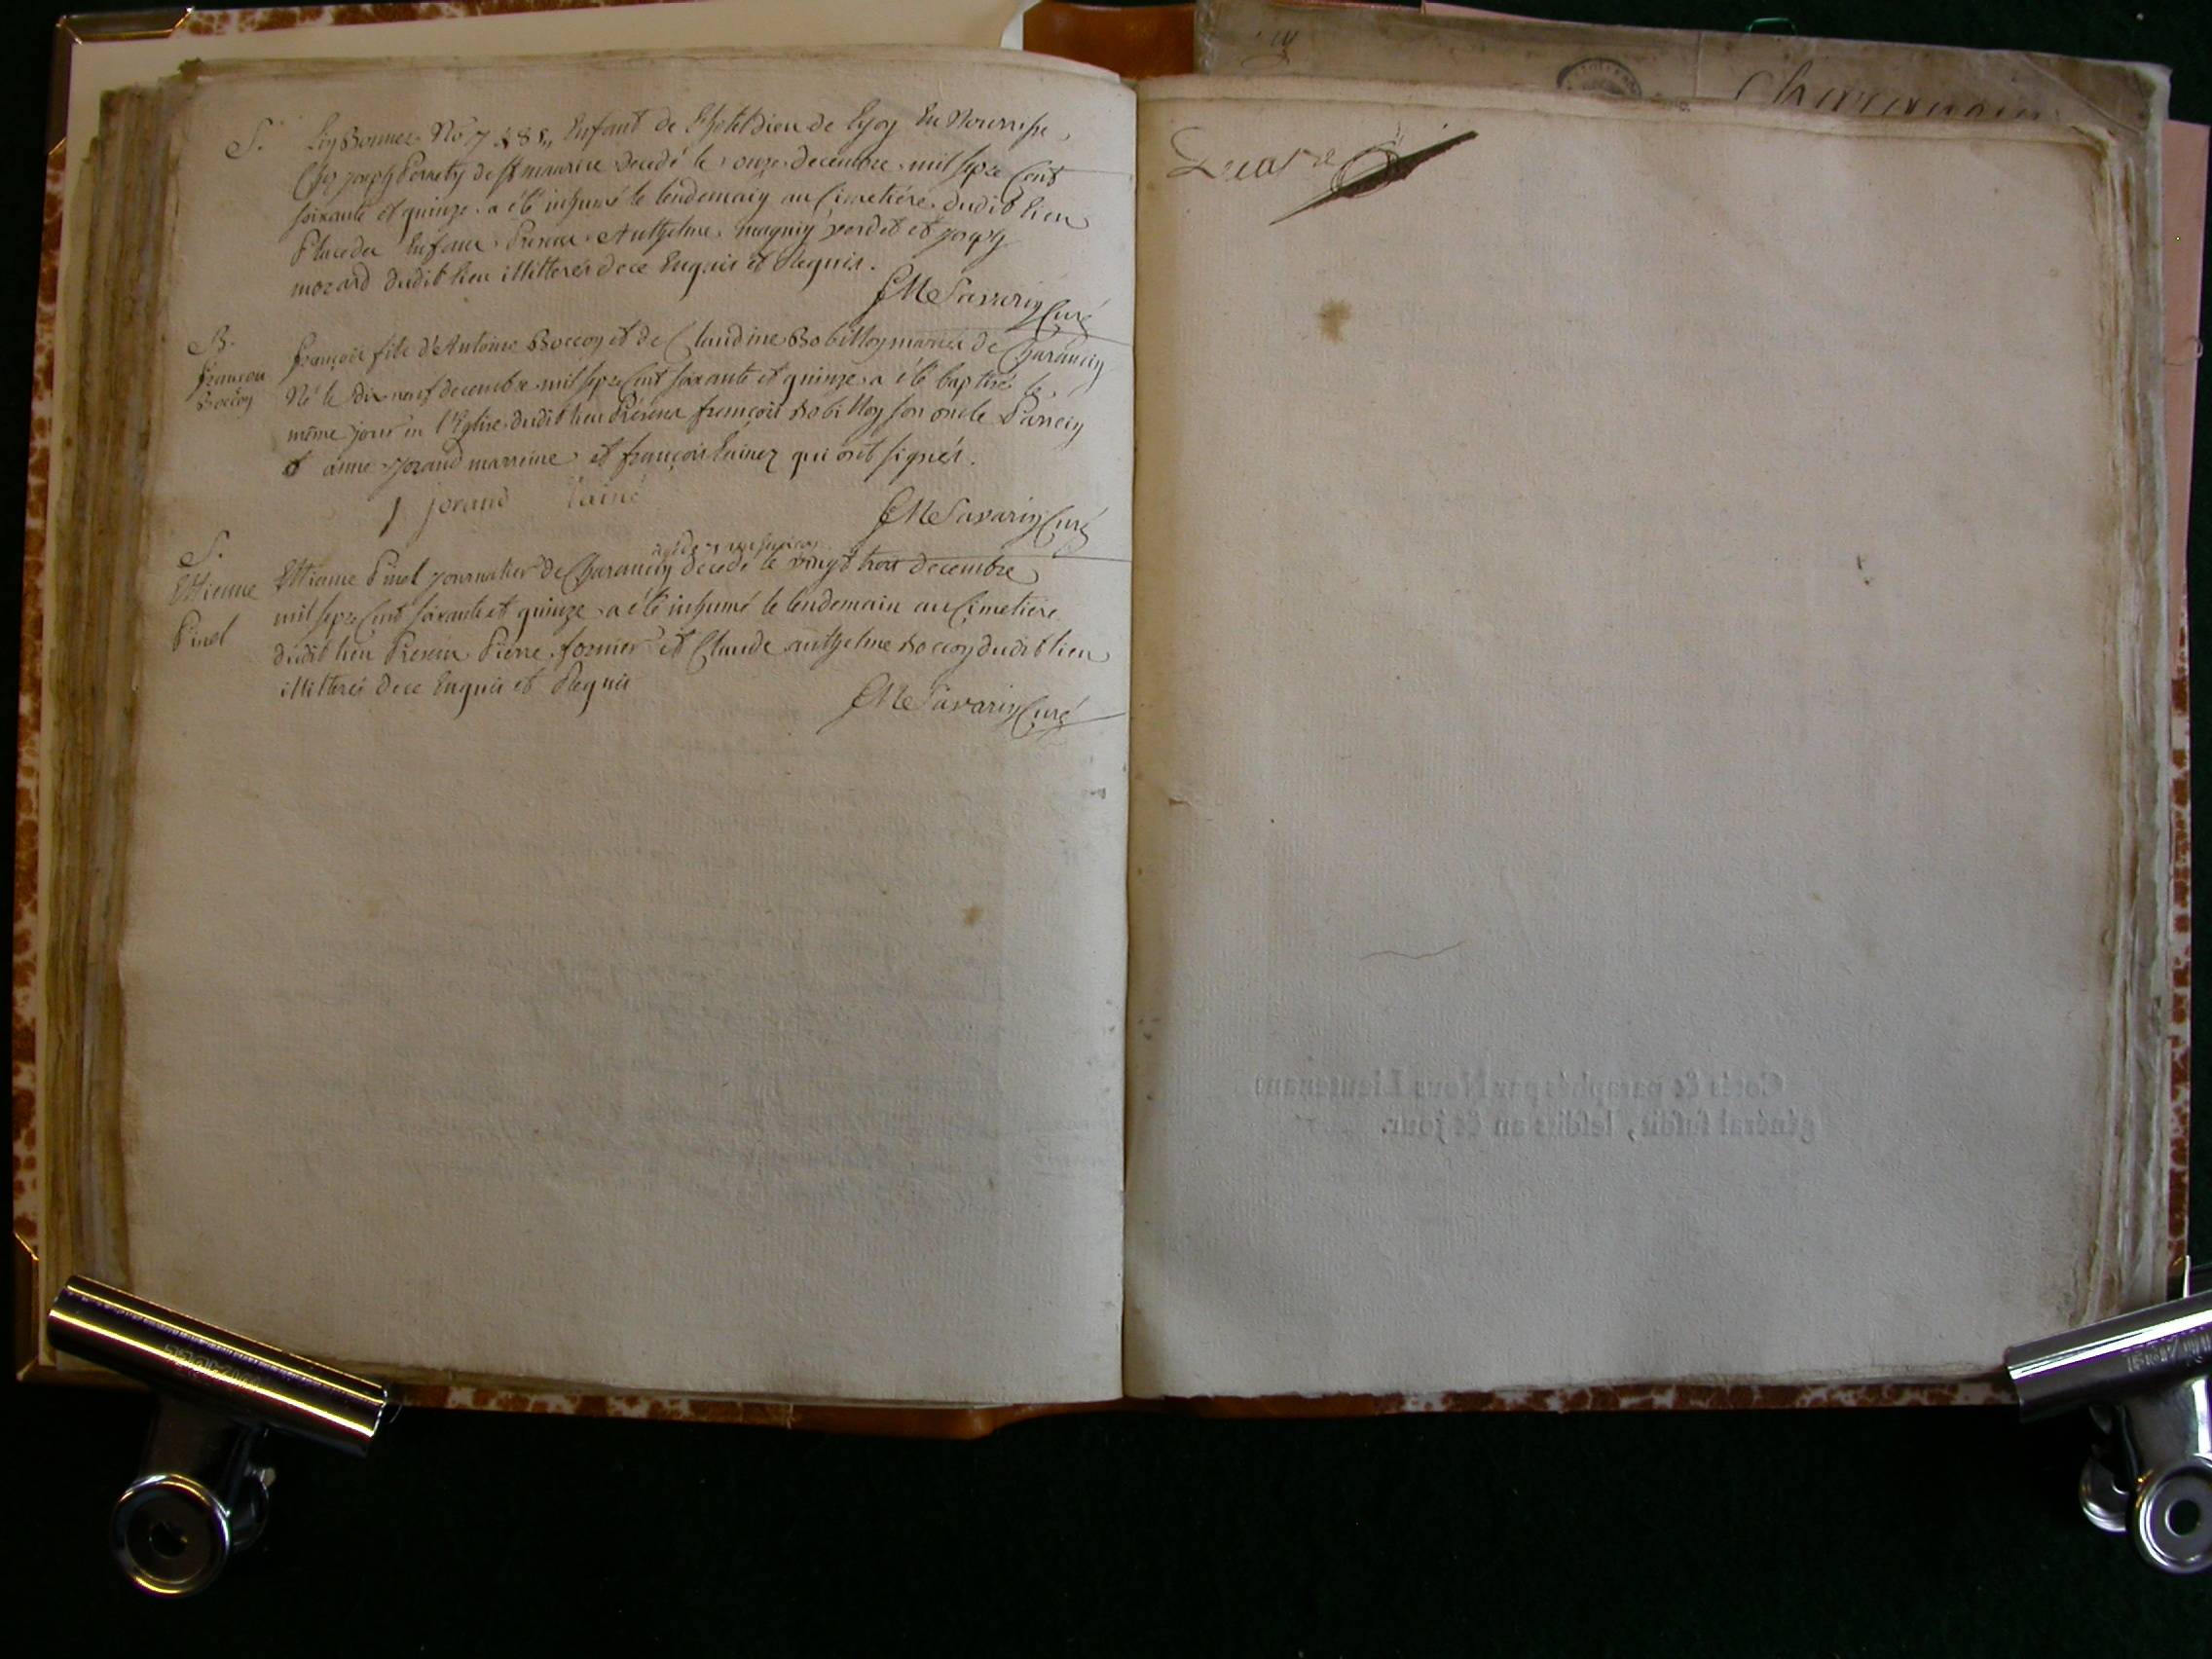 S.
Bonnez No 7 enfant de l'hôteldieu de Lyon en Nourrisse
Chez joseph Perrety de st maurice decedé le onze decembre mil sept Cent
soixante et quinze a été inhumé le lendemain au Cimetiére dudit lieu
Place des Enfans Présens Anthelme magnin verdet et joseph
mozard dudit lieu illitterés de ce Enquis et Requis.
Savarin Curé
B.
françois
Boccon
françois fils d'Antoine Boccon et de Claudine Bobillon mariés de Charancin
Né le dix neuf decembre mil sept Cent soixante et quinze a été baptisé le
même jour en l'Eglise dudit lieu Présens françois Bobillon son oncle Parrein
et anne jorand marreine et françois Lainez qui ont signés.
j jorand Lainé
Savarin Curé
S.
Ettienne
Pinel
agé de
Ettienne Pinel journalier de Charancin decedé le vingt trois decembre
mil sept Cent soixante et quinze a été inhumé le lendemain au Cimetiére
dudit lieu Présens Pierre fornier et Claude anthelme Boccon dudit lieu
illitterés de ce Enquis et Requis
Savarin Curé
Cotés & paraphés par Nous Lieutenant
général susdit, lesdits an & jour.